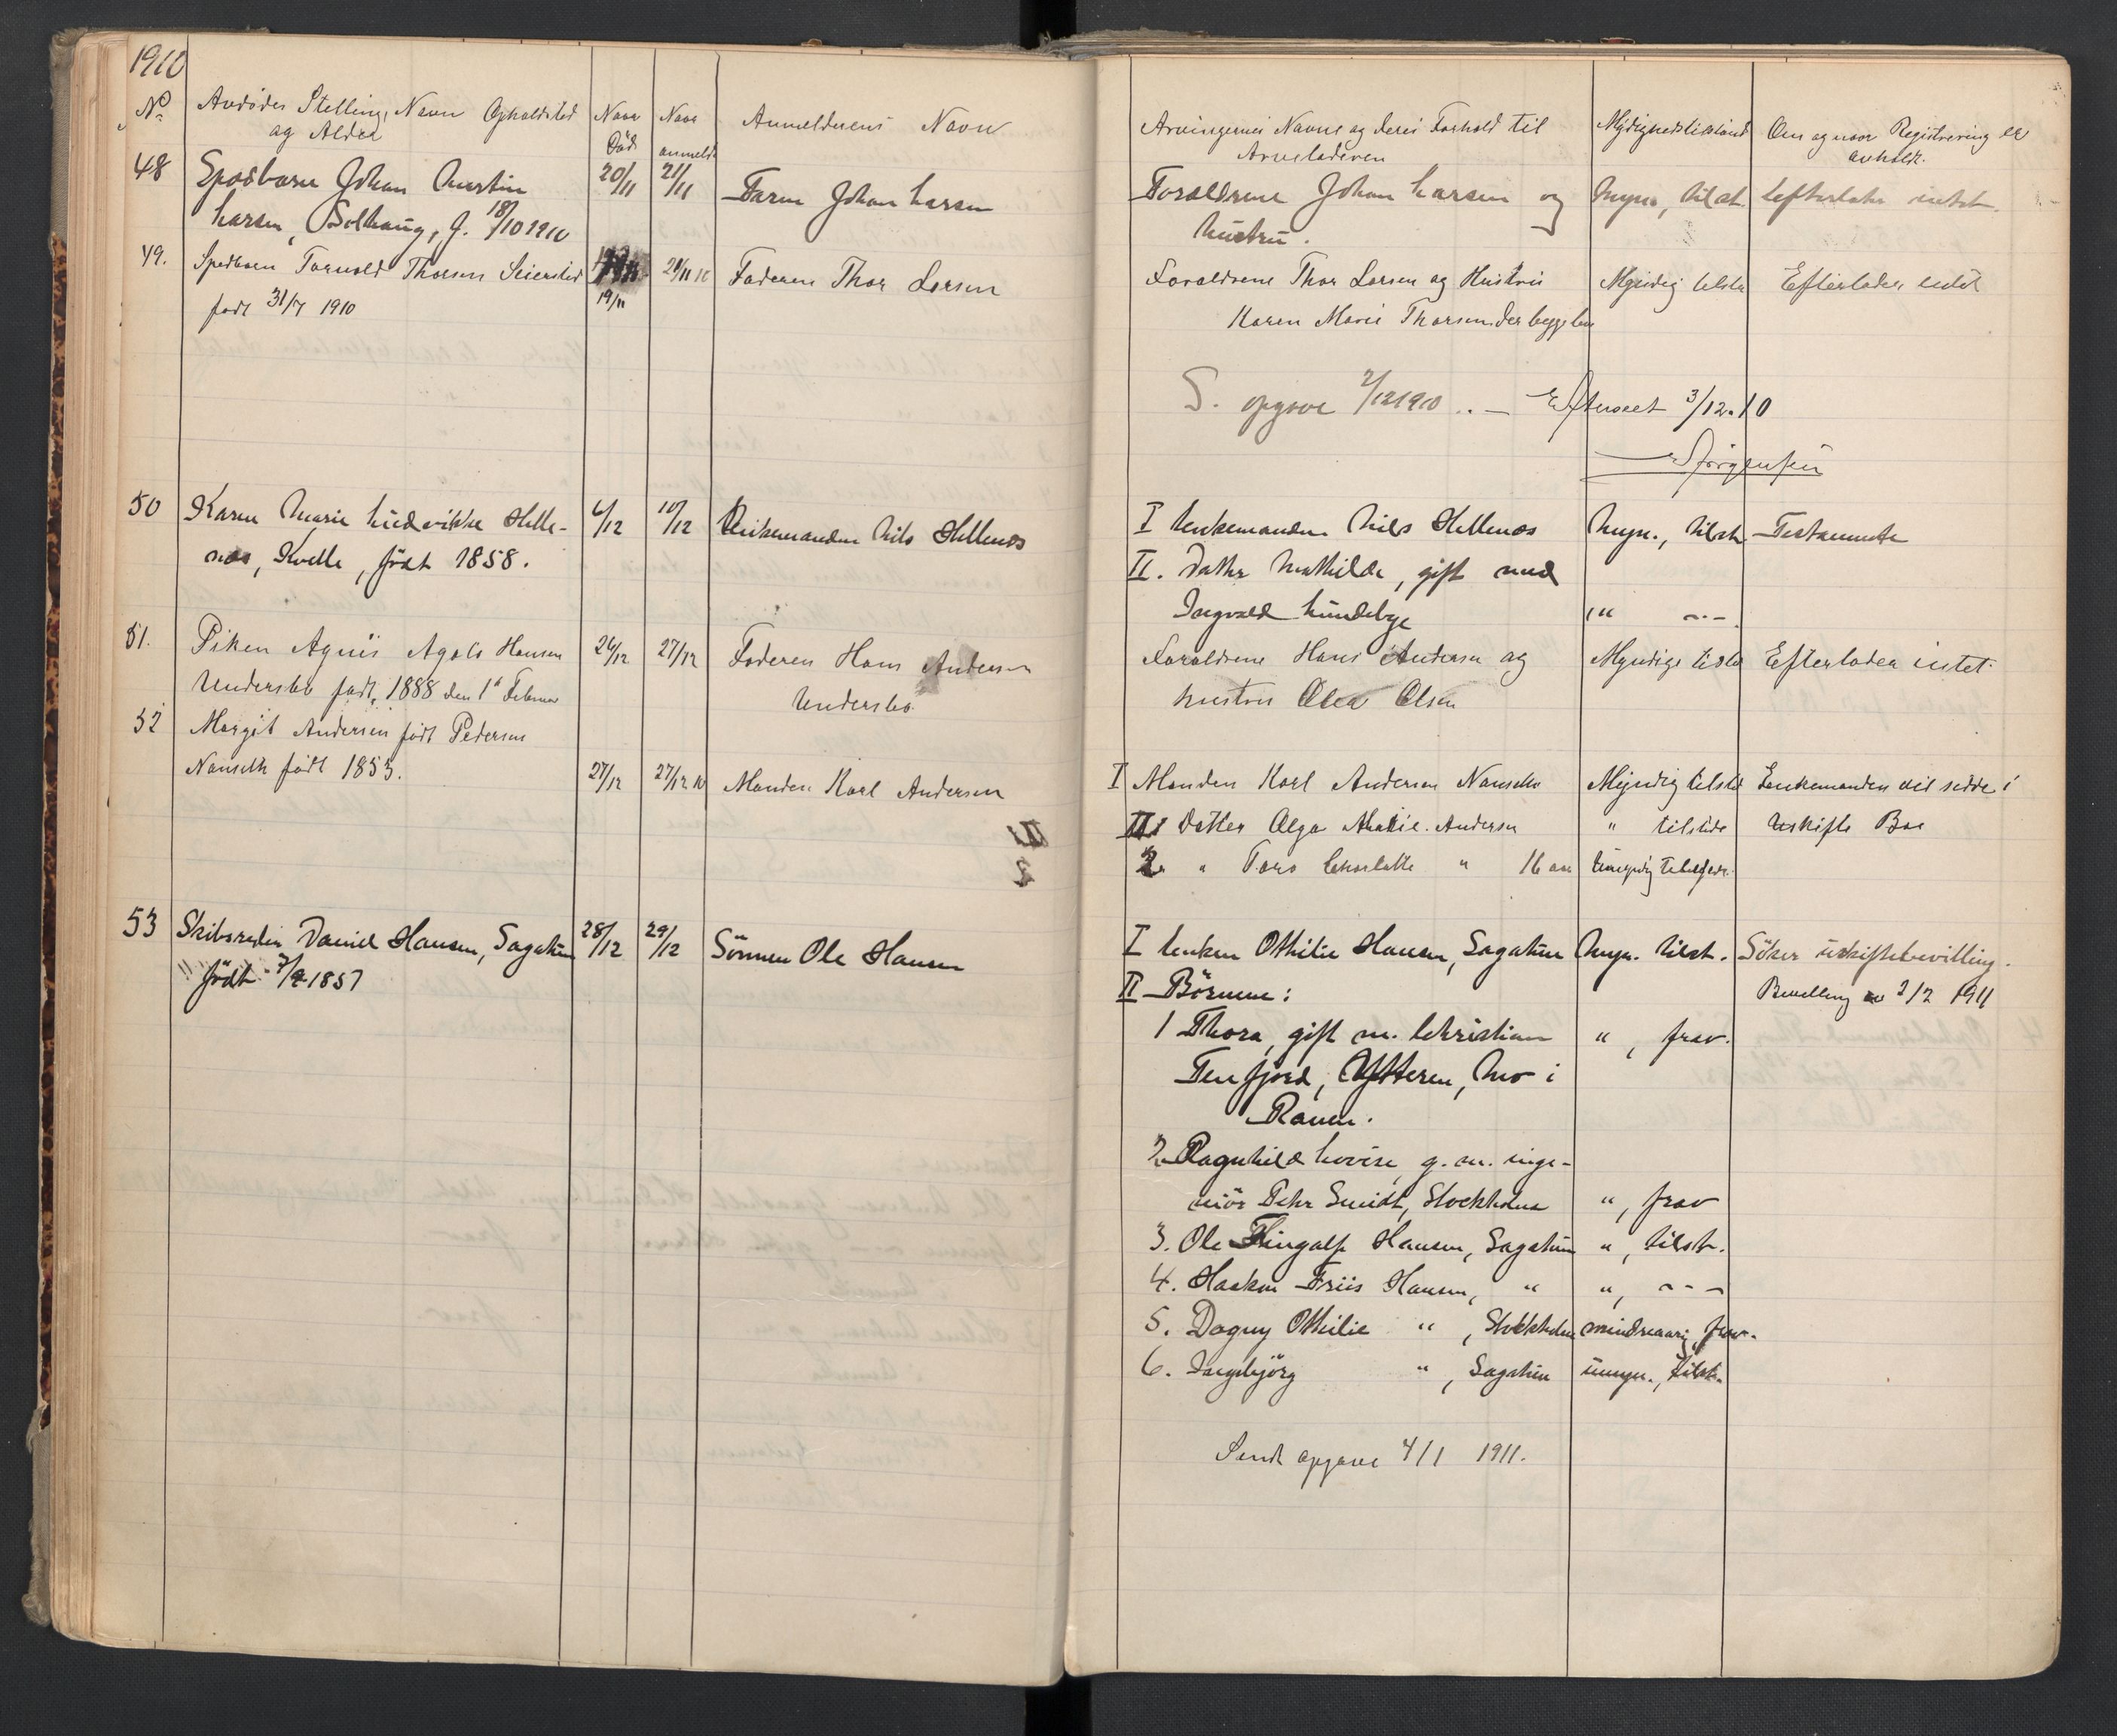 1910
No Avdødes Stelling, Navn Opholdsted Naar Naar Anmelderens Navn
og Alder Död anmeldt
48 Spædbarn Johan Martin 20/11 21/11 Faren Johan Larsen
Larsen, Solhaug, f. 18/10 1910
49. Spedbarn Torvald Thorsen Seierstad 29/11 10 Faderen Thor Larsen
født 31/7 1910 19/11
50 Karen Marie Ludvikke Helle- 6/12 10/12 Enkemanden Nils Hellenæs
næs, Kvelle, født 1858.
51. Piken Agnis Agate Hansen 26/12 27/12 Faderen Hans Andersen
Undersbo født, 1888 den 1ste Februar Undersbo
52 Margit Andersen født Pedersen
Nanseth født 1853. 27/12 27/12 10 Manden Karl Andersen
II
2
53 Skibsreder Daniel Hansen, Sagatun 28/12 29/12 Sönnen Ole Hansen
født 1857
Arvingernes Navne og deres Forhold til Myndighedstilstand Om og naar Registrering er
Arveladeren avholdt.
Forældrene Johan Larsen og Myn., tilst. Efterlater intet.
hustru.
Foraldrene Thor Larsen og Hustru Myndig tilste Efterlader intet
Karen Marie Thorsen
S. opgave 2/12 1910 .. — Efterseet 3/12.10
Jörgensen
I Enkemanden Nils Hellenæs Myn., tilst. Testamente
II. Datter Mathilde, gift med
Ingvald Lundebye " -.-.
Foraldrene Hans Andersen og Myndige tilste Efterlader intet.
hustru Olea Olsen
I Manden Karl Andersen Nanseth Myndig tilsted Enkemanden vil sidde i
II 1 Datter Olga Andersen " tilstede Uskifte Bo
2 " Tora Charlotte " 16 aar Umyndig
I Enken Othilie Hansen, Sagatun Myn. tilst. Söker uskiftebevilling.
II Börnene: Bevilling av 3/2 1911
1 Thora, gift m. Christian ", frav.
Tenfjord, Ytteren, Mo i
Ranen.
2 Ragnhild Lovise, g. m. inge-
niör Pehr Smidt, Stockholm ", frav
3. Ole Thingalf Hansen, Sagatun ", tilst.
4. Haakon Friis Hansen, " ", - - -
5. Dagny Othilie ", Stockholm mindreaarig, frav.
6. Ingebjörg ", Sagatun umyn., tilst.
Sendt opgave 4/1 1911.